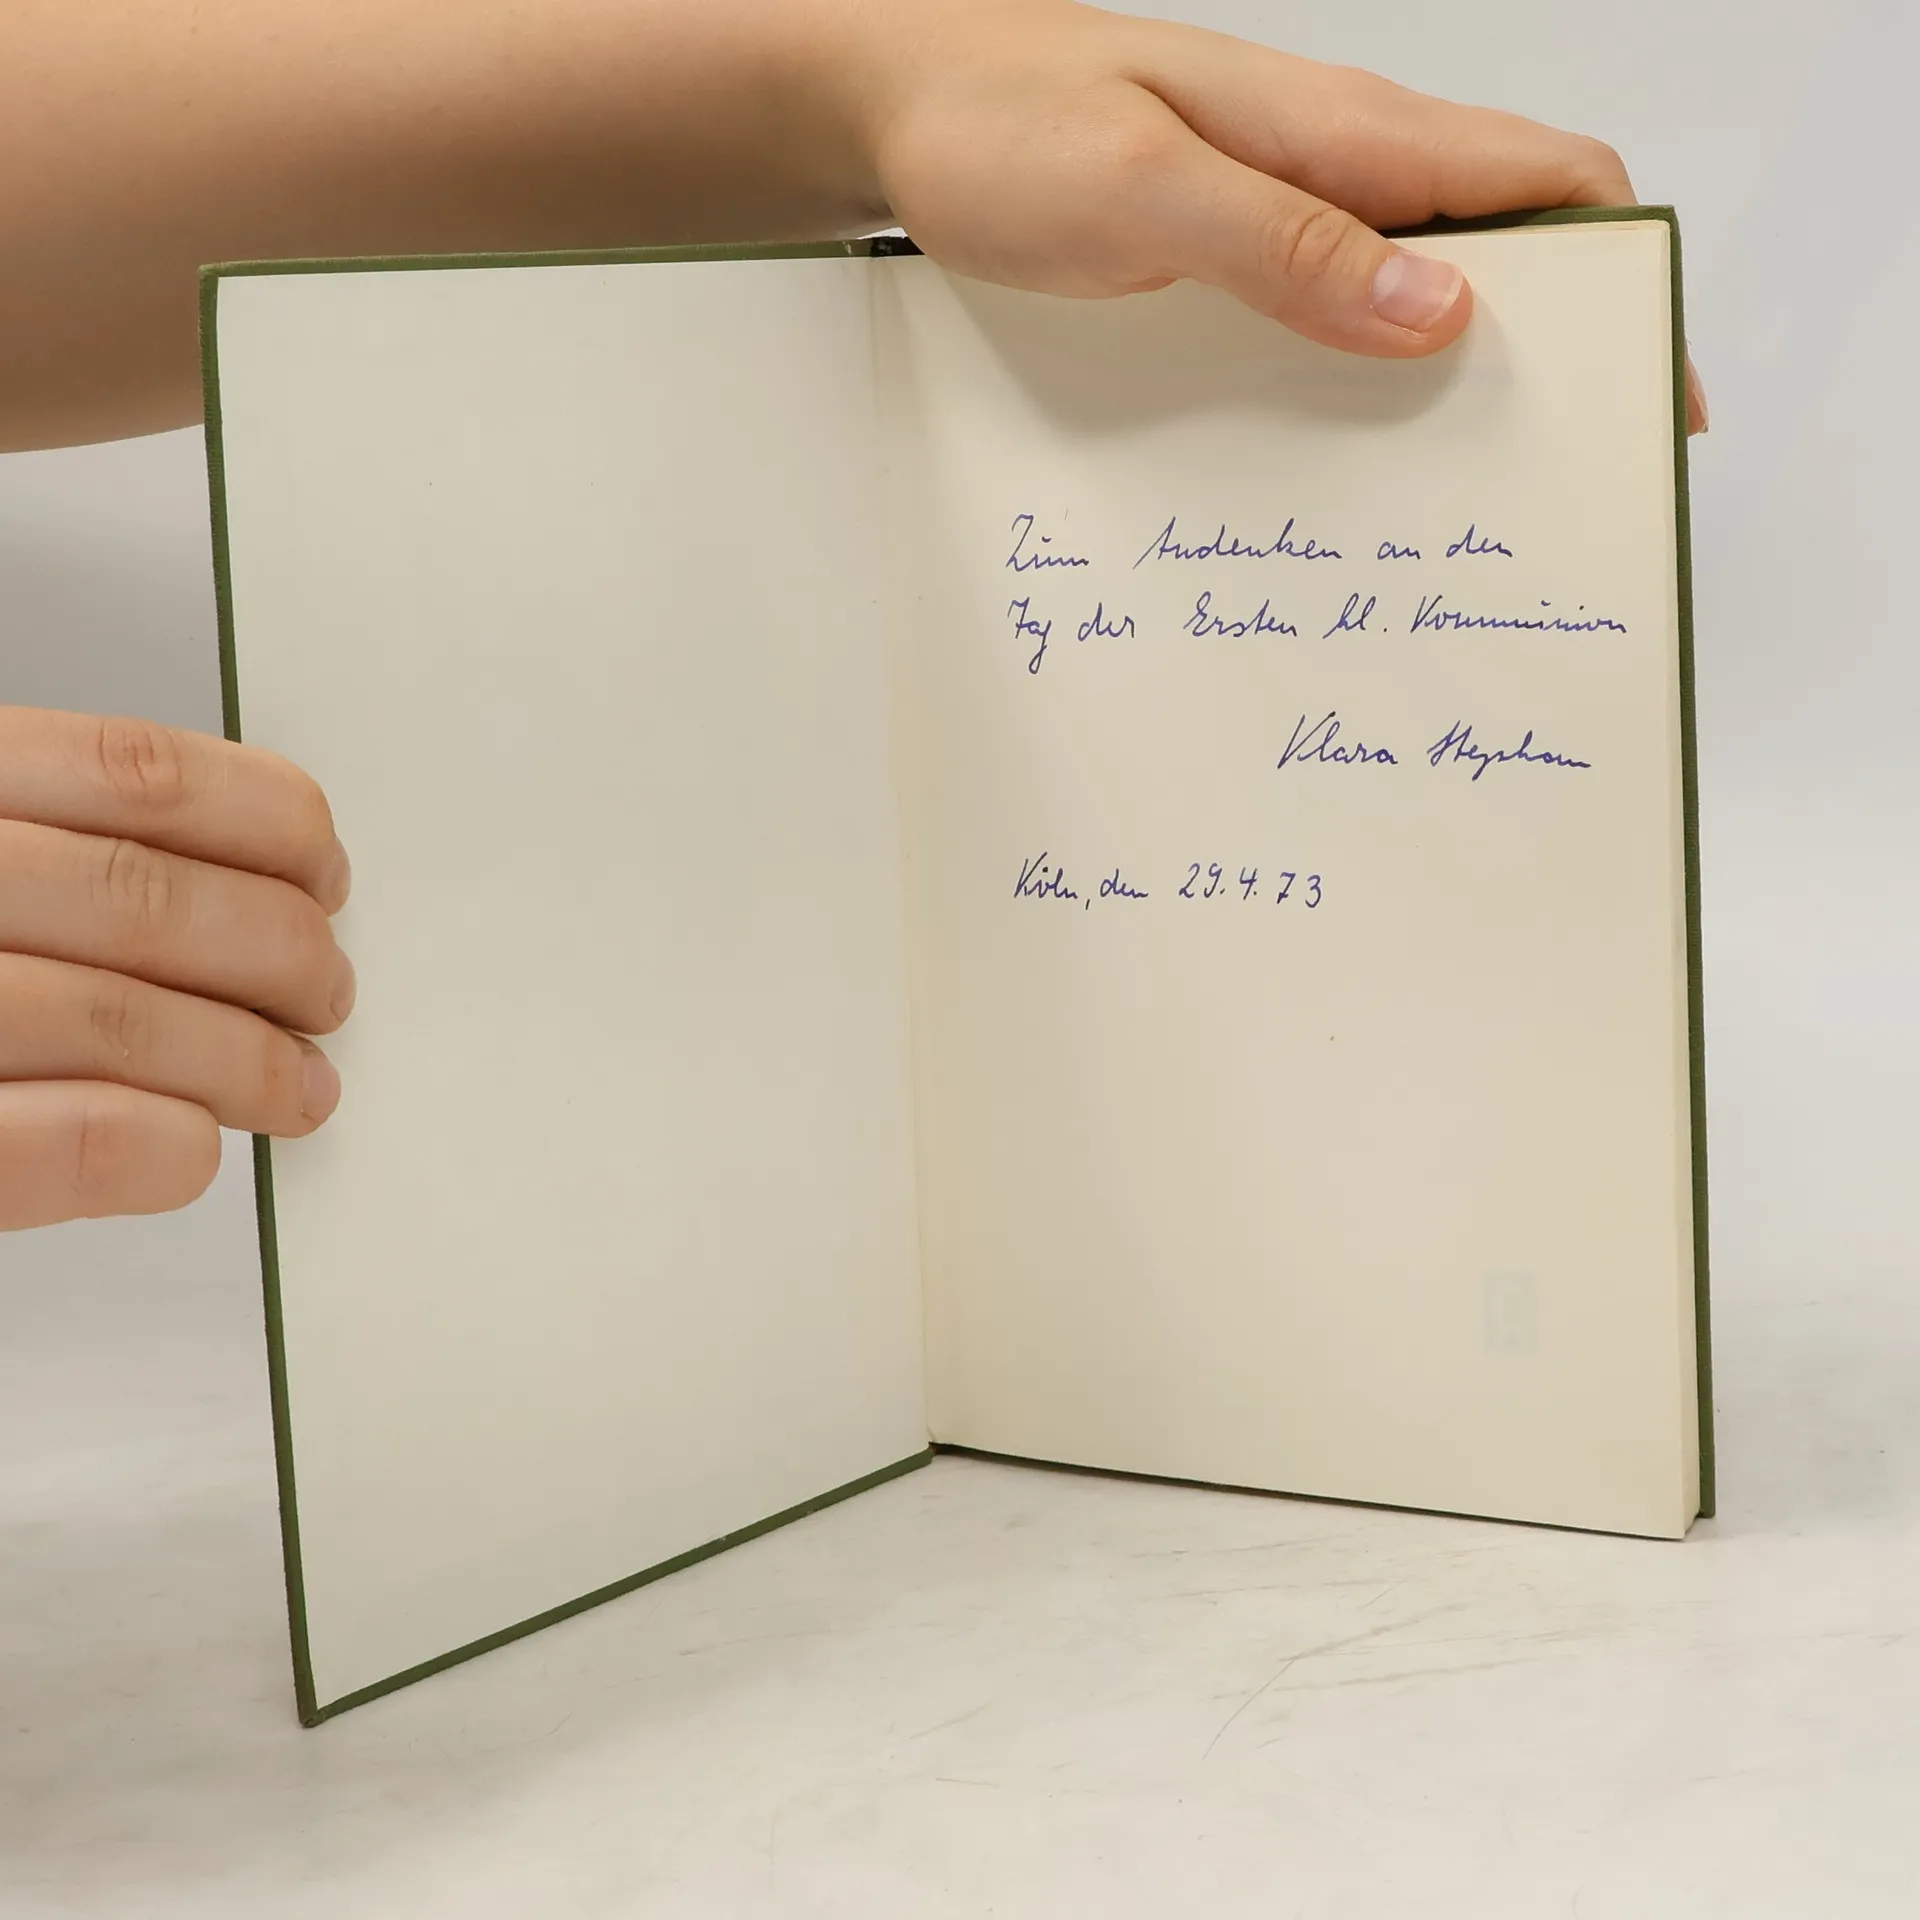 Zum Andenken an den
Tag der Ersten hl. Kommunion
Klara Stephan
Köln, den 29.4.73